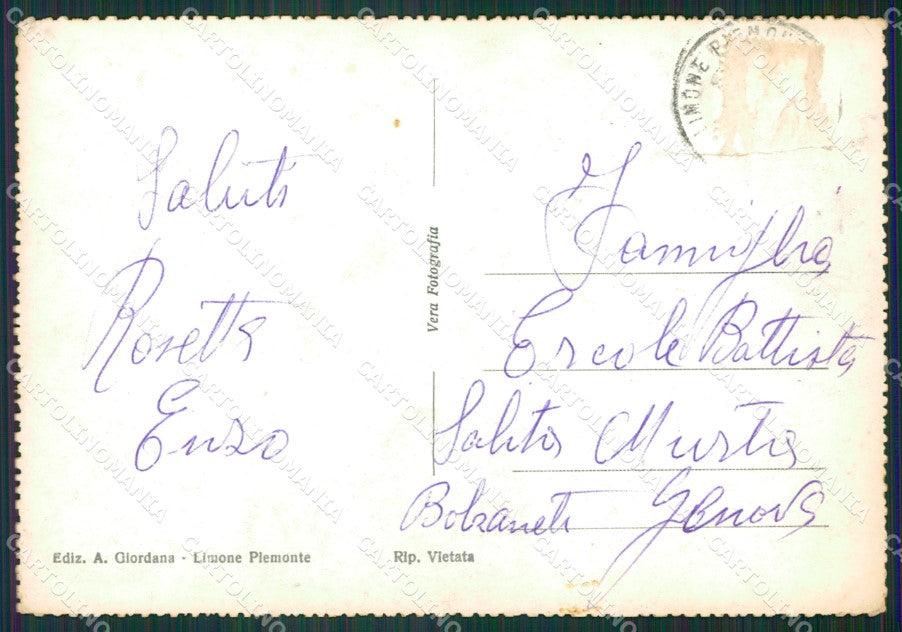 Saluti
Rosetta
Enzo
Ediz. A. Giordana - Limone Piemonte
Vera Fotografia
Rip. Vietata
LIMONE PIEMONTE
Famiglia
Ercole Battista
Salita Murta
Bolzaneto Genova
CARTOLINOMANIA